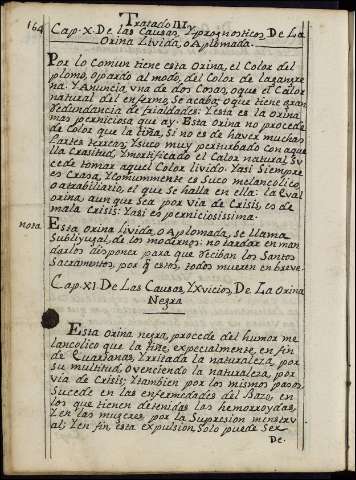 164
Tratado III y
Cap. X. De las Causas, Y prognosticos De La
Orina Livida, o Aplomada.
Por lo Comun tiene esta Orina, el Color del
plomo, o pardo al modo, del Color de la sangre
na. Y Anuncia una de dos Cosas, o que el Calor
natural del enfermo, Se acaba; o que tiene gran
redundancia de frialdades: Y esta es la Orina
mas perniciosa que ay. Esta Orina no procede
de Color que la tiña, Si no es de haver muchas
partes terreas, Y suco muy perturbado Con aque
lla Crasitud, Y mortificado el Calor natural, Su
cede tomar aquel Color livido. Y asi Siempre
es Crasa, Y Comunmente es Suco melancolico,
o atrabiliario, el que Se halla en ella: la Qual
orina, aun que Sea por via de Crisis, es de
mala Crisis: Y asi es perniciosissima.
nota.
Esta Orina livida, o Aplomada, se llama
Subliyugal, de los modernos: no tardar en man
darlos disponer para que reciban los Santos
Sacramentos, por q̃ estos, todos mueren en breve.
Cap. XI De Las Causas, Y Xvicios, De La Orina
Negra
Esta Orina negra, procede del humor me
lancolico que la tiñe, expecialmente, en fin
de Quartanas, Yrritada la naturaleza, por
su multitud, o venciendo la naturaleza, por
via de Crisis; Y tambien por los mismos pasos,
Sucede en las enfermedades del Bazo, en
los que tienen detenidas las hemorroydas,
Y en las mugeres, por la Supresion menstru
al; Y en fin esta expulsion, Solo puede Ser
De-